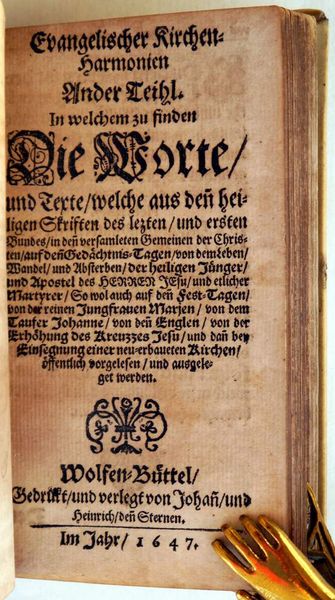 Evangelischer Kirchen-
Harmonien
Ander Teihl.
In welchem zu finden
Die Worte/
und Texte/welche aus deñ hei-
ligen Skriften des lezten/und ersten
Bundes/in deñ versamleten Gemeinen der Chris-
ten/auf deñ Gedächtnis-Tagen/von dem Leben/
Wandel/und Absterben/der heiligen Jünger/
und Apostel des HERREN JEsu/und etlicher
Martyrer/So wol auch auf den Fest-Tagen/
von der reinen Jungfrauen Marien/von dem
Taufer Johanne/von deñ Englen/von der
Erhöhung des Kreuzzes Jesu/und dañ bey
Einsegnung einer neu-erbaueten Kirchen/
öffentlich vorgelesen/und ausgele-
get werden.
Wolfen-Büttel/
Gedrükt/und verlegt von Johañ/und
Heinrich/deñ Sternen.
Im Jahr/1647.